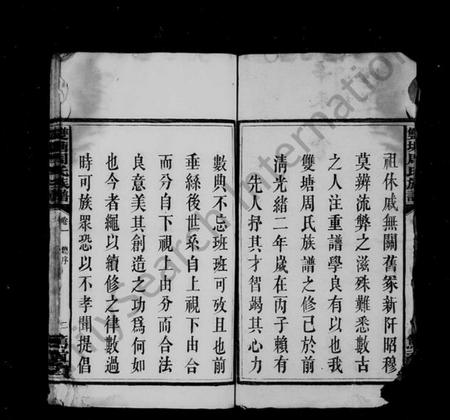 祖休戚無關舊冢新阡昭穆
莫辨流弊之滋殊難悉數古
之人注重譜學良有以也我
雙塘周氏族譜之修已於前
清光緒二年歲在丙子賴有
先人抒其才智竭其心力
數典不忘班班可攷且也前
垂緜後世系自上視下由合
而分自下視上由分而合法
良意美其創造之功爲何如
也今者繩以續修之律數過
時可族眾恐以不孝聞提倡
雙塘周氏族譜
卷一
二
MySearch International